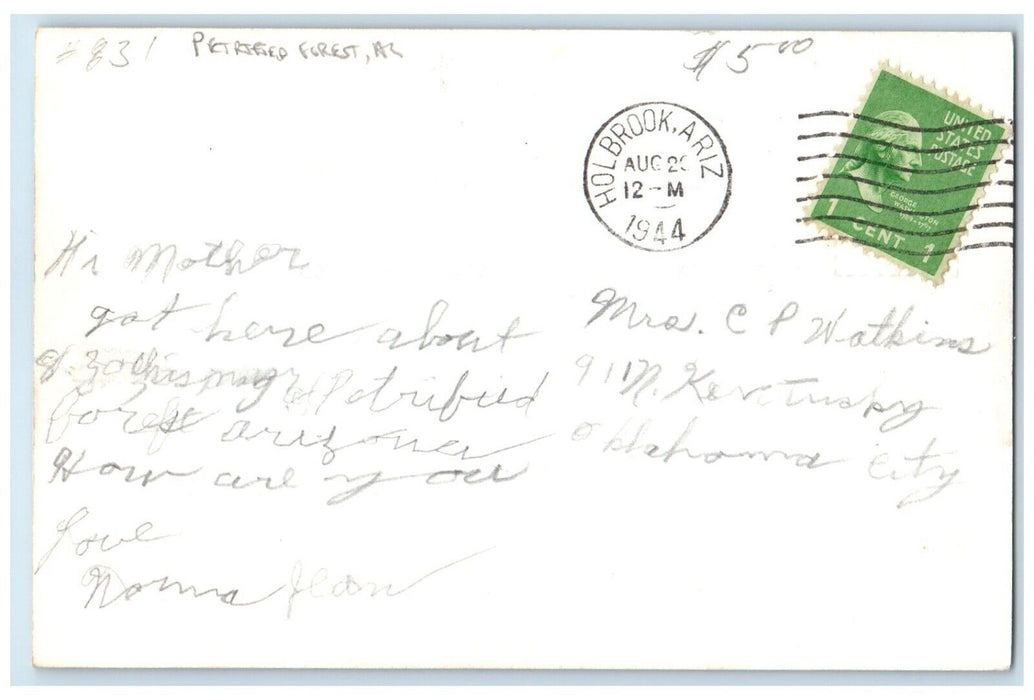 #831 PETRIFIED FOREST, AZ
$5.00
HOLBROOK, ARIZ
AUG 2
12-M
1944
UNITED
STATES
POSTAGE
GEORGE
WASHINGTON
1 CENT 1
Hi Mother
got here about
8:30 this mng at Petrified
Forest Arizona
How are you
Love
Norma Jean
Mrs. C P Watkins
911 N. Kentucky
Oklahoma City